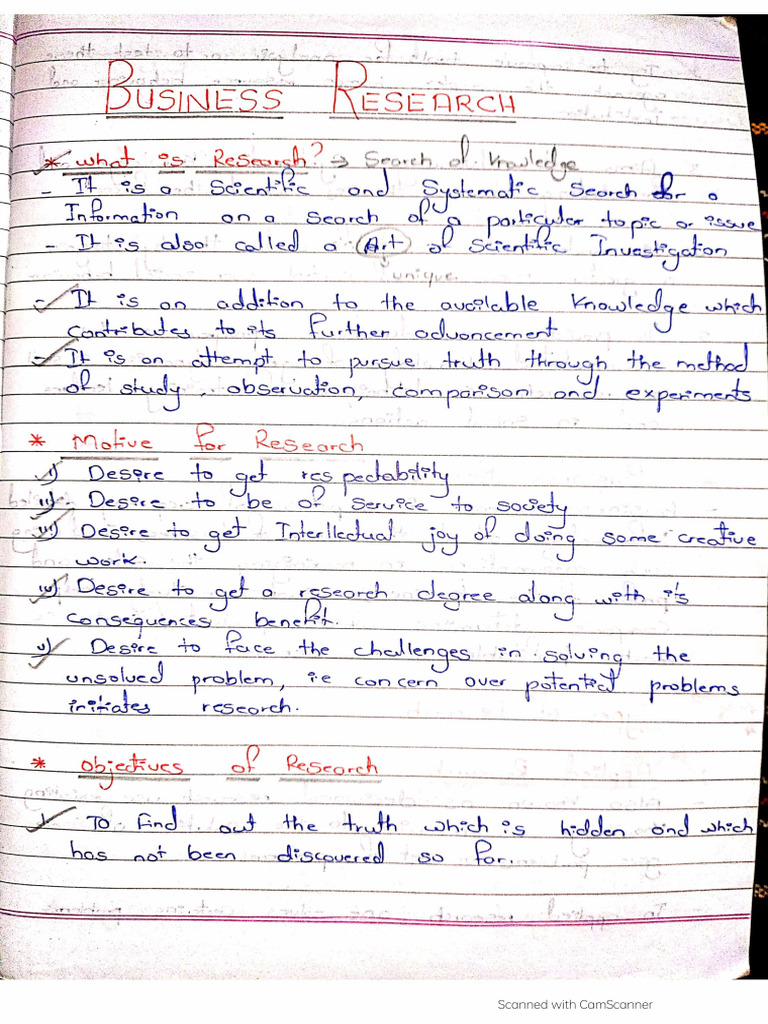 BUSINESS RESEARCH
* What is Research? → Search of Knowledge
- It is a Scientific and Systematic Search for a
Information on a Search of a particular topic or issue
- It is also called a Art of Scientific Investigation
unique
- It is an addition to the available Knowledge which
contributes to its further advancement
- It is an attempt to pursue truth through the method
of study, observation, comparison and experiments
* Motive for Research
i) Desire to get respectability
ii) Desire to be of service to society
iii) Desire to get Interllectual joy of doing some creative
work.
iv) Desire to get a research degree along with it's
consequences benefit.
v) Desire to face the challenges in solving the
unsolved problem, ie concern over potential problems
initiates research.
* Objectives of Research
1. To Find out the truth which is hidden and which
has not been discovered so far.
Scanned with CamScanner